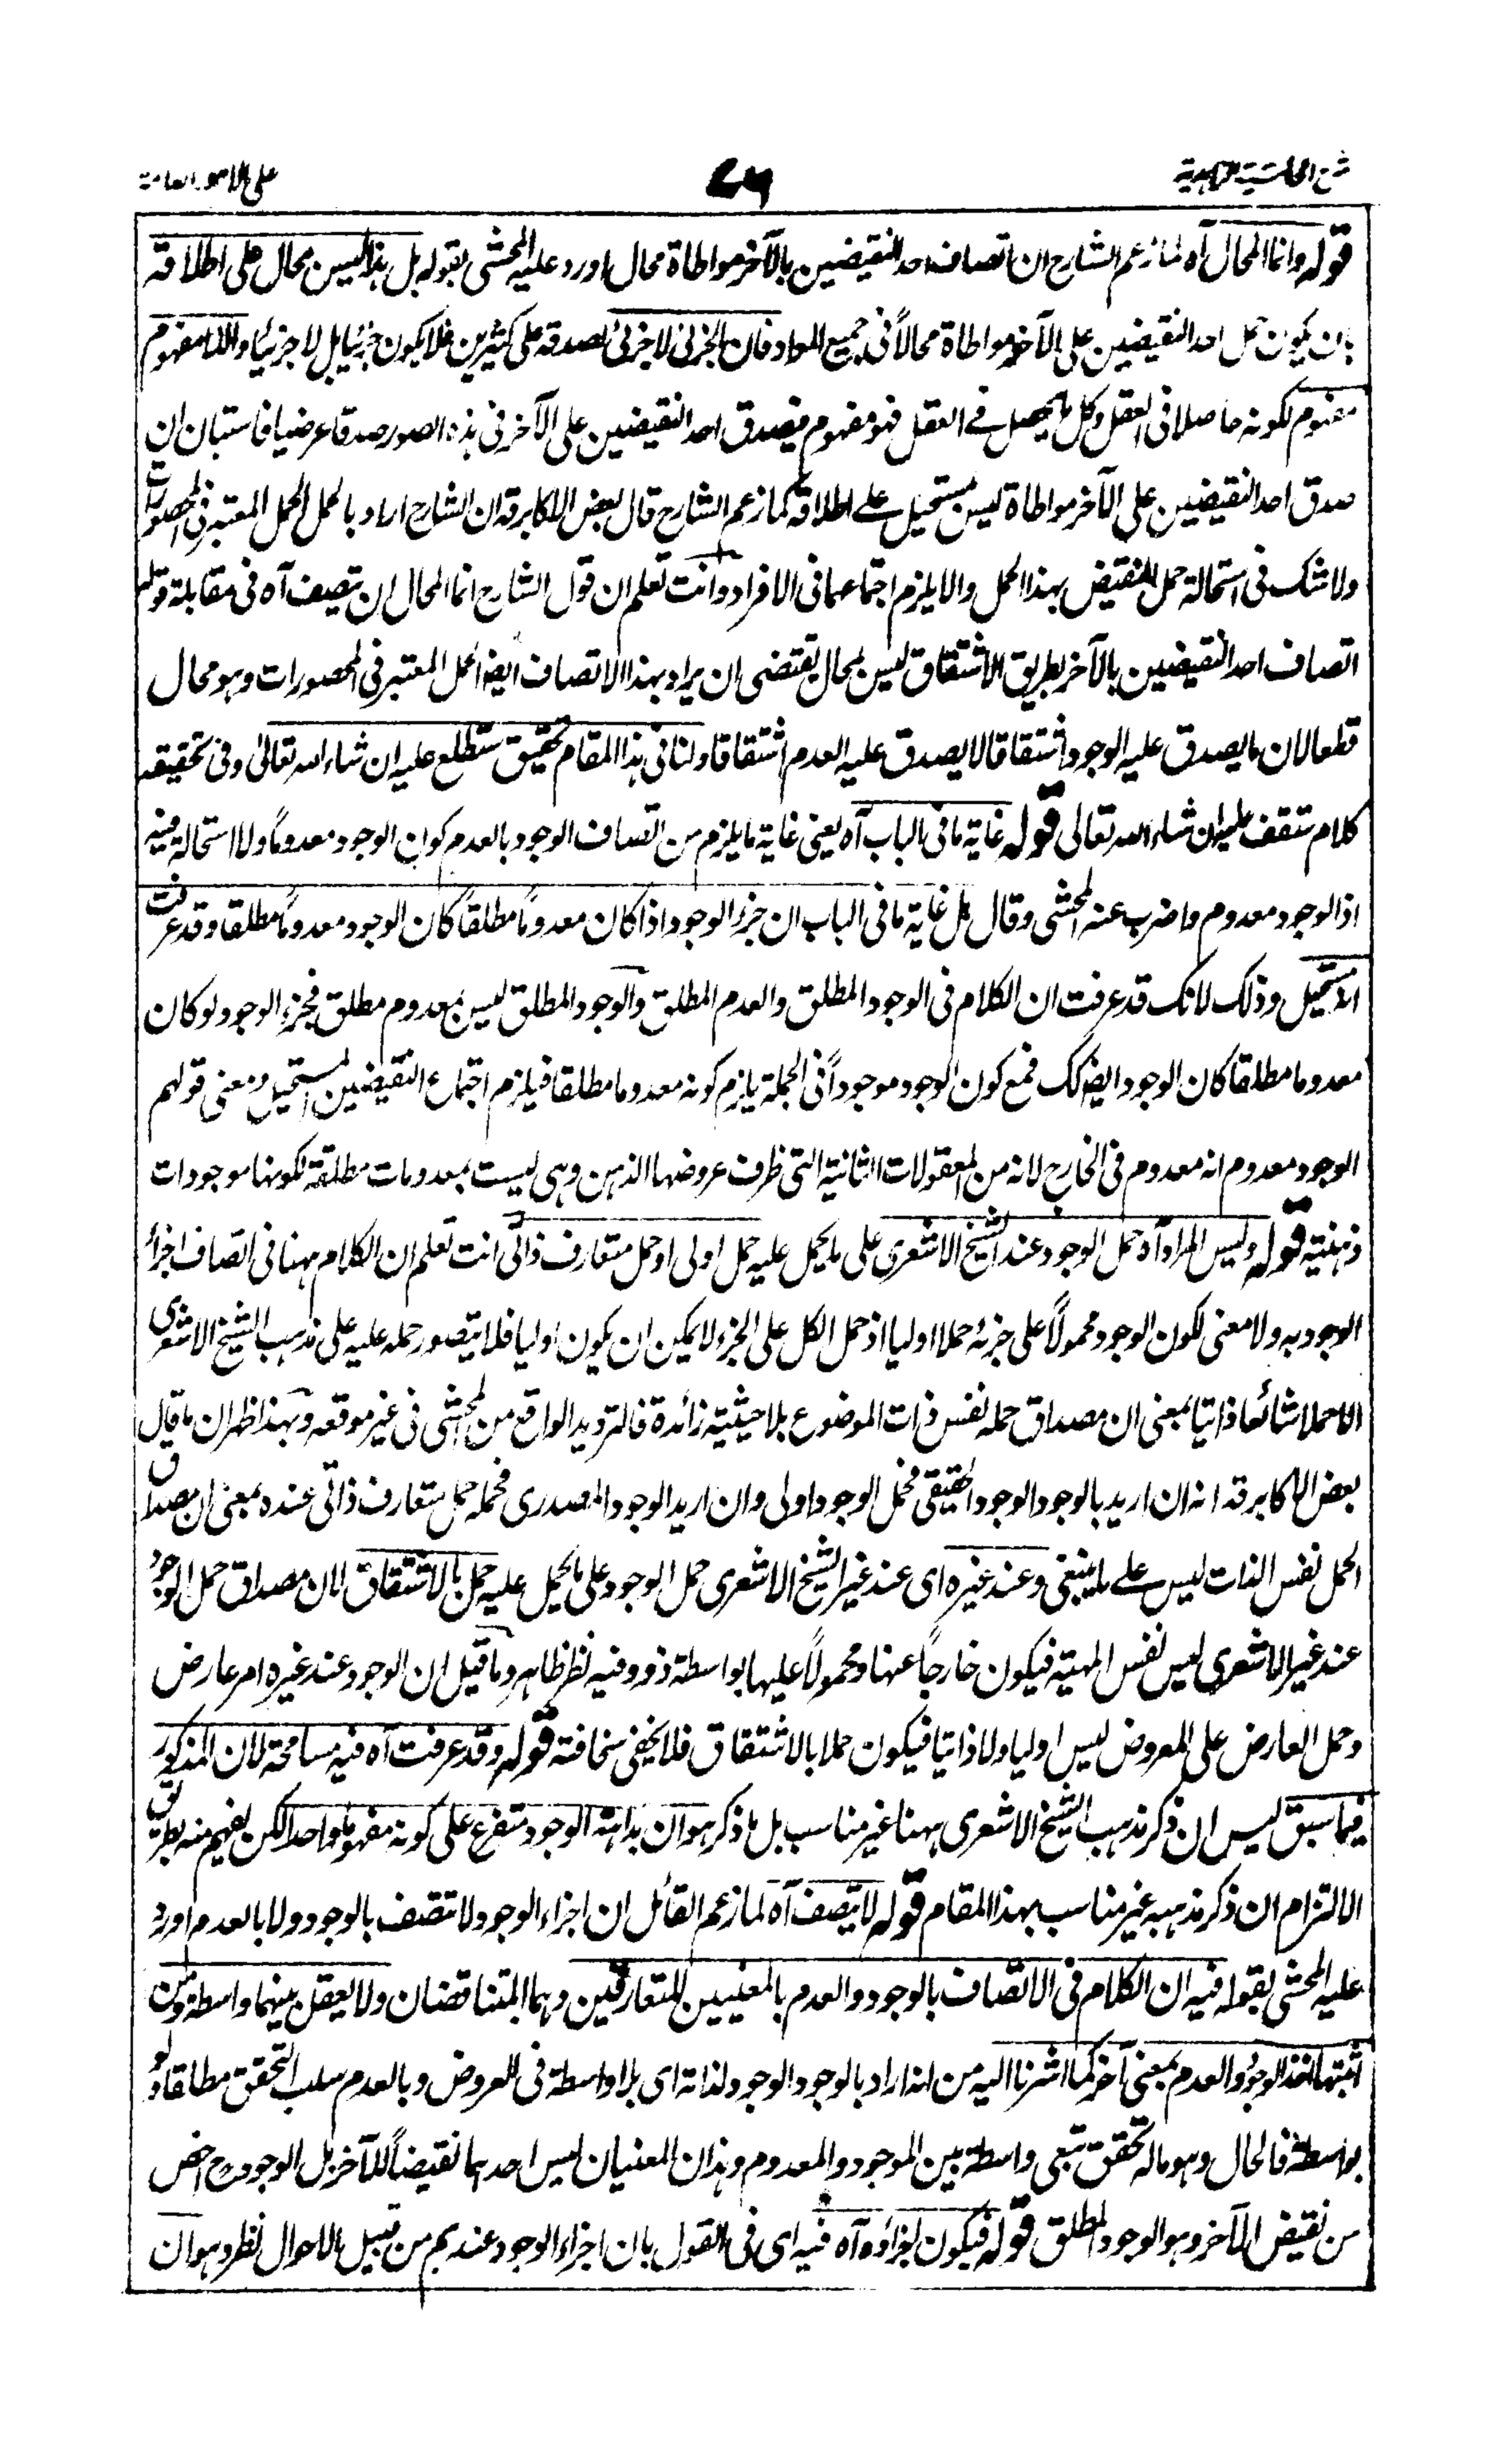 شرح الحاشية الزاهدية
٧٦
على الامور العامة
قوله وانما المحال آه لما زعم الشارح ان اتصاف احد النقيضين بالآخر مواطاة محال اورد عليه المحشى بقوله بل هذا ليس بمحال على اطلاقه
بان يكون حمل احد النقيضين على الآخر مواطاة محالاً فى جميع المواد فان الجزئى لا جزئى لصدقه على كثيرين فلا يكون جزئيا بل لا جزئيا واللا مفهوم
مفهوم لكونه حاصلا فى العقل وكل ما يحصل فے العقل فهو مفهوم فيصدق احد النقيضين على الآخر فى هذه الصور صدقا عرضيا فاستبان ان
صدق احد النقيضين على الآخر مواطاة ليس بمستحيل علے اطلاقه كما زعم الشارح قال بعض الاكابر قد ان الشارح اراد بالحمل الحمل المعتبر فى المحصورات
ولا شك فى استحالة حمل النقيض بهذا الحمل والا يلزم اجتماعهما فى الافراد وانت تعلم ان قول الشارح انما المحال ان يتصف آه فى مقابلة قوله
اتصاف احد النقيضين بالآخر بطريق الاشتقاق ليس بمحال يقتضى ان يراد بهذا الاتصاف ايضا الحمل المعتبر فى المحصورات وهو محال
قطعا لان ما يصدق عليه الوجود اشتقاقا لا يصدق عليه العدم اشتقاقا ولنا فى هذا المقام تحقيق ستطلع عليه ان شاء الله تعالى وفى تحقيقه
كلام ستقف عليه ان شاء الله تعالى قوله غاية ما فى الباب آه يعنى غاية ما يلزم من اتصاف الوجود بالعدم كون الوجود معدوماً ولا استحالة فيه
اذ الوجود معدوم واضرب عنه المحشى وقال بل غاية ما فى الباب ان جزء الوجود اذا كان معدوماً مطلقاً كان الوجود معدوماً مطلقا وقد عرفت
انه مستحيل وذلك لانك قد عرفت ان الكلام فى الوجود المطلق والعدم المطلق والوجود المطلق ليس بمعدوم مطلق فجزء الوجود لو كان
معدوما مطلقا كان الوجود ايضا كك فمع كون الوجود موجوداً فى الجملة يلزم كونه معدوما مطلقا فيلزم اجتماع النقيضين المستحيل ومعنى قولهم
الوجود معدوم انه معدوم فى الخارج لانه من المعقولات الثانية التى ظرف عروضها الذهن وهى ليست بمعدومات مطلقة لكونها موجودات
ذهنية قوله وليس المراد آه حمل الوجود عند الشيخ الاشعرى على ما يحمل عليه حمل اولى او حمل متعارف ذاتى انت تعلم ان الكلام ههنا فى اتصاف اجزاء
الوجود به ولا معنى لكون الوجود محمولاً على جزئه حملا اوليا اذ حمل الكل على الجزء لا يمكن ان يكون اوليا فلا يتصور حمله عليه على مذهب الشيخ الاشعرى
الا حملا شائعا ذاتيا بمعنى ان مصداق حمله نفس ذات الموضوع بلا حيثية زائدة فالترديد الواقع من المحشى فى غير موقعه وبهذا ظهر ان ما قال
بعض الاكابر قد انه ان اريد بالوجود الوجود الحقيقى فحمل الوجود اولى وان اريد الوجود المصدرى فحمله حمل متعارف ذاتى عنده بمعنى ان مصداق
الحمل نفس الذات ليس علے ما ينبغى وعند غيره اى عند غير الشيخ الاشعرى حمل الوجود على ما يحمل عليه حمل بالاشتقاق لان مصداق حمل الوجود
عند غير الاشعرى ليس نفس المهية فيكون خارجاً عنها ومحمولاً عليها بواسطة ذو وفيه نظر ظاهر وما قيل ان الوجود عند غيره امر عارض
وحمل العارض على المعروض ليس اوليا ولا ذاتيا فيكون حملا بالاشتقاق فلا يخفى سخافته قوله وقد عرفت آه فيه مسامحة لان المذكور
فيما سبق ليس ان ذكر مذهب الشيخ الاشعرى ههنا غير مناسب بل ما ذكر هو ان بداهة الوجود متفرع على كونه مفهوما واحدا لكن يفهم منه بطريق
الالتزام ان ذكر مذهبه غير مناسب بهذا المقام قوله لا يتصف آه لما زعم القائل ان اجزاء الوجود لا تتصف بالوجود ولا بالعدم اورد
عليه المحشى بقوله فيه ان الكلام فى الاتصاف بالوجود والعدم بالمعنيين المتعارفين وهما المتناقضان ولا يعقل بينهما واسطة ومن
اثبتها اخذ الوجود والعدم بمعنى آخر كما اشرنا اليه من انه اراد بالوجود الوجود لذاته اى بلا واسطة فى العروض وبالعدم سلب التحقق مطلقا ولو
بواسطة فالحال وهو ماله تحقق تبعى واسطة بين الموجود والمعدوم وهذان المعنيان ليس احدهما نقيضاً للآخر بل الوجود ح اخص
من نقيض الآخر وهو الوجود المطلق قوله فيكون اجزاؤه آه فيه اى فى القول بان اجزاء الوجود عندهم من قبيل الاحوال نظر وهو ان